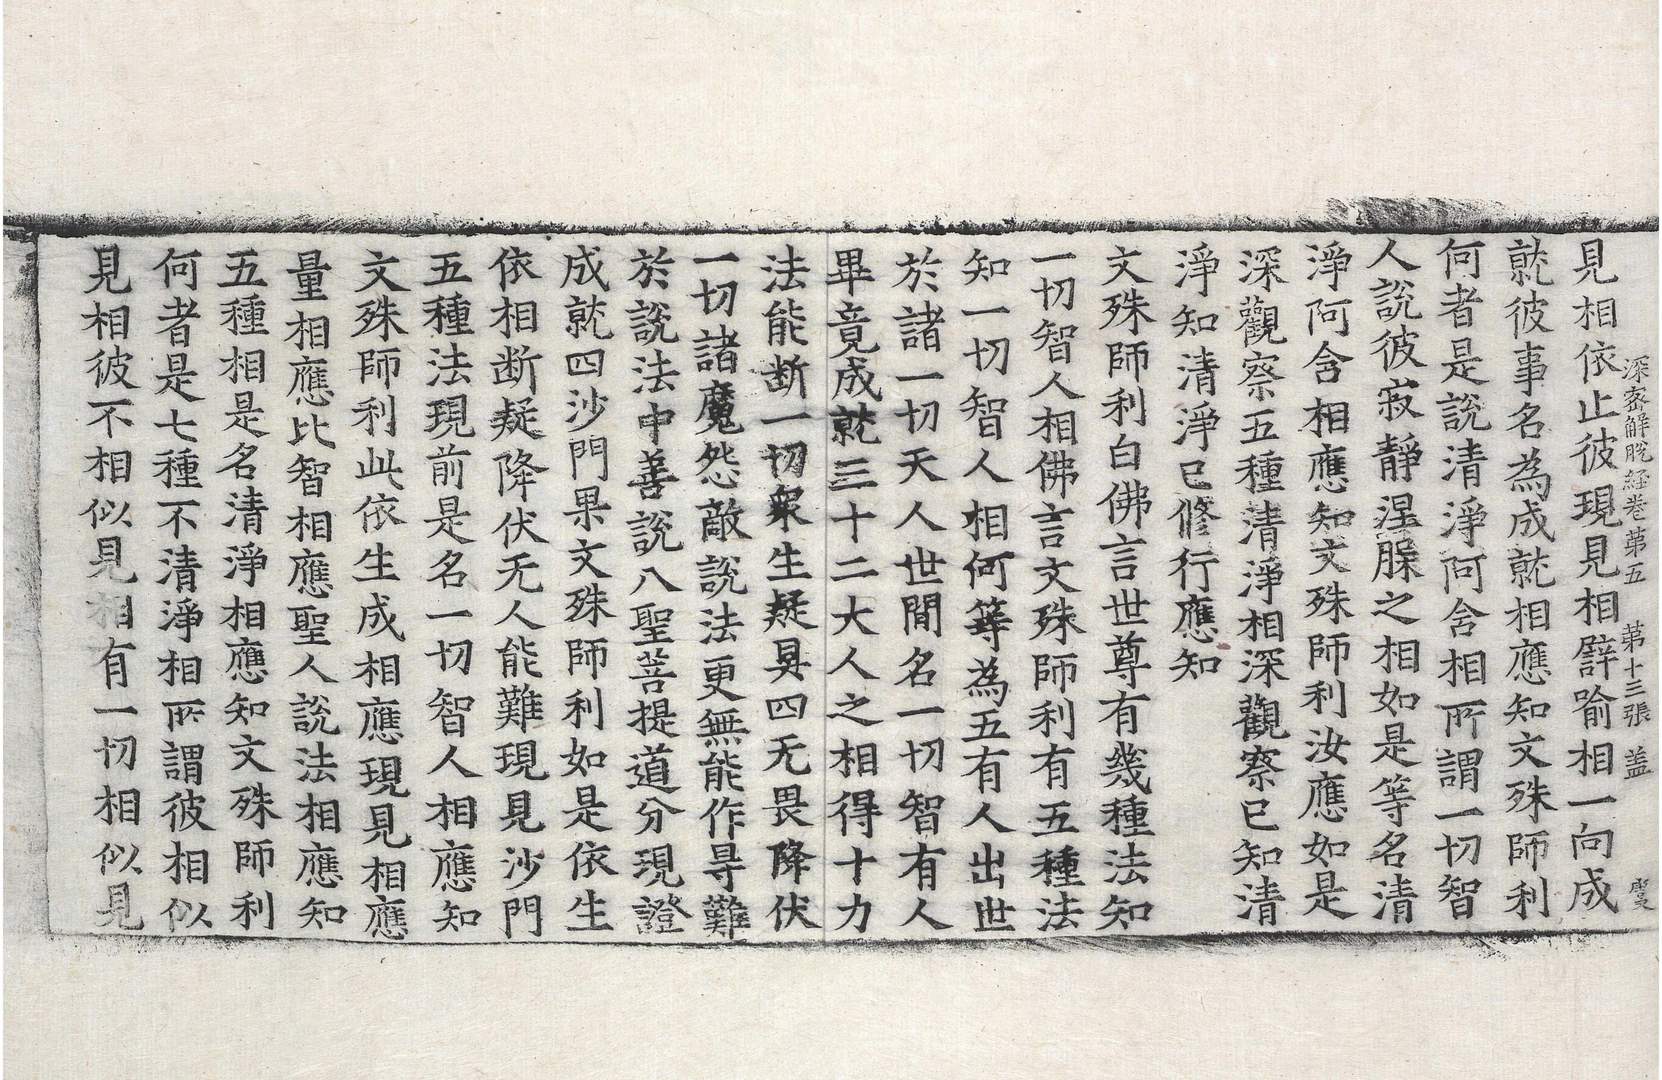 深密解脫経卷苐五　苐十三張　盖
見相依止彼現見相譬喻相一向成
就彼事名為成就相應知文殊師利
何者是說清淨阿含相所謂一切智
人說彼寂靜涅槃之相如是等名清
淨阿含相應知文殊師利汝應如是
深觀察五種清淨相深觀察已知清
淨知清淨已修行應知
文殊師利白佛言世尊有幾種法知
一切智人相佛言文殊師利有五種法
知一切智人相何等為五有人出世
於諸一切天人世間名一切智有人
畢竟成就三十二大人之相得十力
法能断一切衆生疑具四无畏降伏
一切諸魔怨敵說法更無能作㝵難
於說法中善說八聖菩提道分現證
成就四沙門果文殊師利如是依生
依相断疑降伏无人能難現見沙門
五種法現前是名一切智人相應知
文殊師利此依生成相應現見相應
量相應比智相應聖人說法相應知
五種相是名清淨相應知文殊師利
何者是七種不清淨相所謂彼相似
見相彼不相似見相有一切相似見